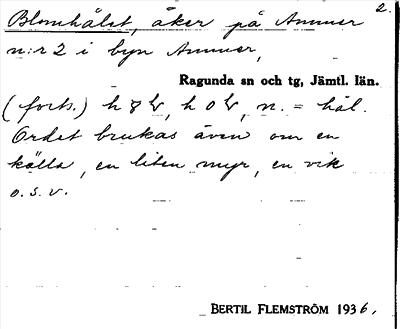 2.
Blomhålet, åker på Ammer
n:r 2 i byn Ammer,
Ragunda sn och tg, Jämtl. län.
(forts.) h, h o, n. = hål.
Ordet brukas även om en
källa, en liten myr, en vik
o.s.v.
BERTIL FLEMSTRÖM 1936,